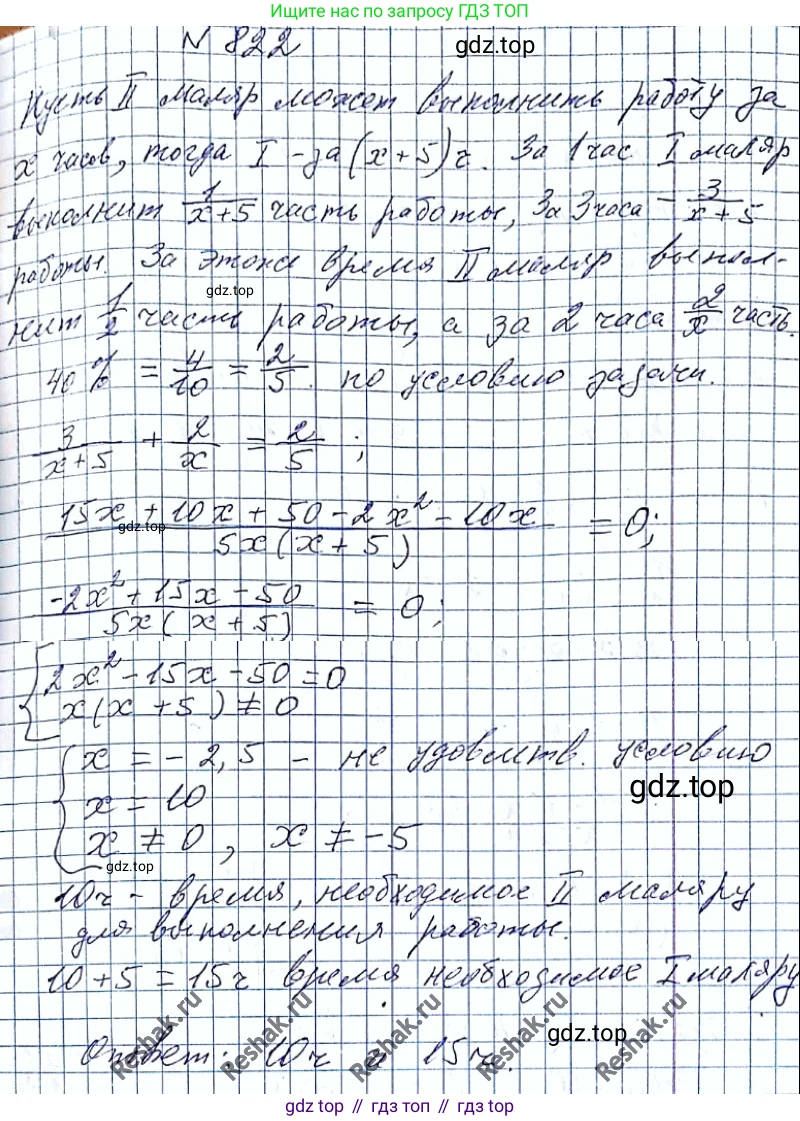 Ищите нас по запросу ГДЗ ТОП
N 822
gdz.top
Пусть II маляр может выполнить работу за
x часов, тогда I - за (x+5) ч. За 1 час I маляр
выполнит 1/(x+5) часть работы, За 3 часа - 3/(x+5)
работы. За это же время II маляр выпол-
gdz.top
нит 1/2 часть работы, а за 2 часа 2/x часть.
40% = 4/10 = 2/5. по условию задачи.
3/(x+5) + 2/x = 2/5;
(15x + 10x + 50 - 2x² - 10x)/(5x(x+5)) = 0;
gdz.top
(-2x² + 15x - 50)/(5x(x+5)) = 0;
{ 2x² - 15x - 50 = 0
x(x+5) ≠ 0
{ x = -2,5 - не удовлтв. условию
gdz.top
x = 10
x ≠ 0, x ≠ -5
gdz.top
10ч - время, необходимое II маляру
для выполнения работы.
10 + 5 = 15ч время необходимое I маляру
Reshak.ru Reshak.ru Reshak.ru Reshak.ru Reshak.ru
gdz.top
Ответ: 10ч и 15ч.
gdz top // гдз топ // gdz top